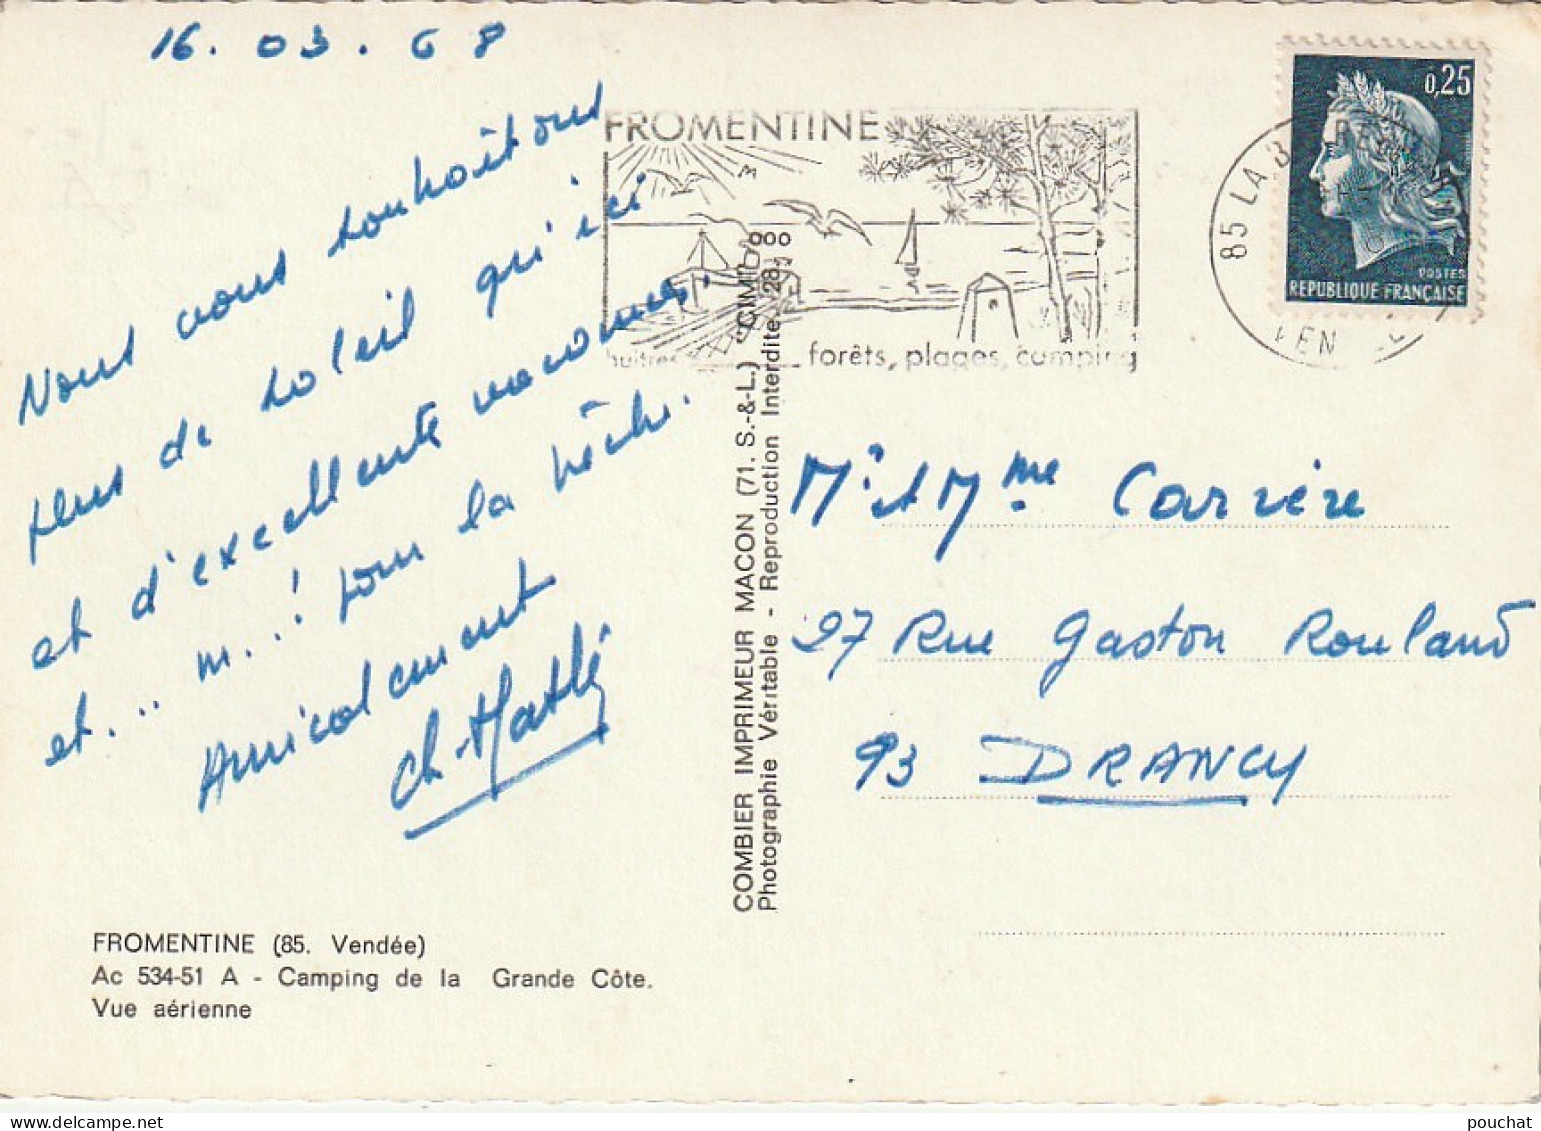 16.03.68
Nous vous souhaitons
plus de soleil qu'ici
et d'excellente vacances.
et... m..! pour la pêche.
Amicalement
Ch. Mathé
FROMENTINE (85. Vendée)
Ac 534-51 A - Camping de la Grande Côte.
Vue aérienne
COMBIER IMPRIMEUR MACON (71. S.-&-L.) "CIM"
Photographie Véritable - Reproduction Interdite
FROMENTINE
huitres forêts, plages, camping
85 LA B
VEN
0,25
POSTES
REPUBLIQUE FRANÇAISE
Mr et Mme Carrère
27 Rue Gaston Rouland
93 DRANCY
pouchat